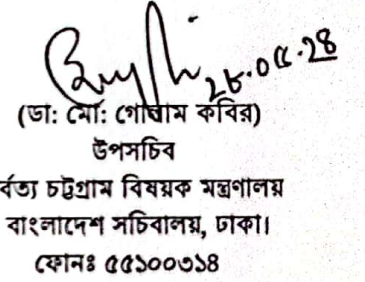 ২৮.০৫.২৪
(ডা: মো: গোলাম কবির)
উপসচিব
র্বত্য চট্টগ্রাম বিষয়ক মন্ত্রণালয়
বাংলাদেশ সচিবালয়, ঢাকা।
ফোনঃ ৫৫১০০৩১৪